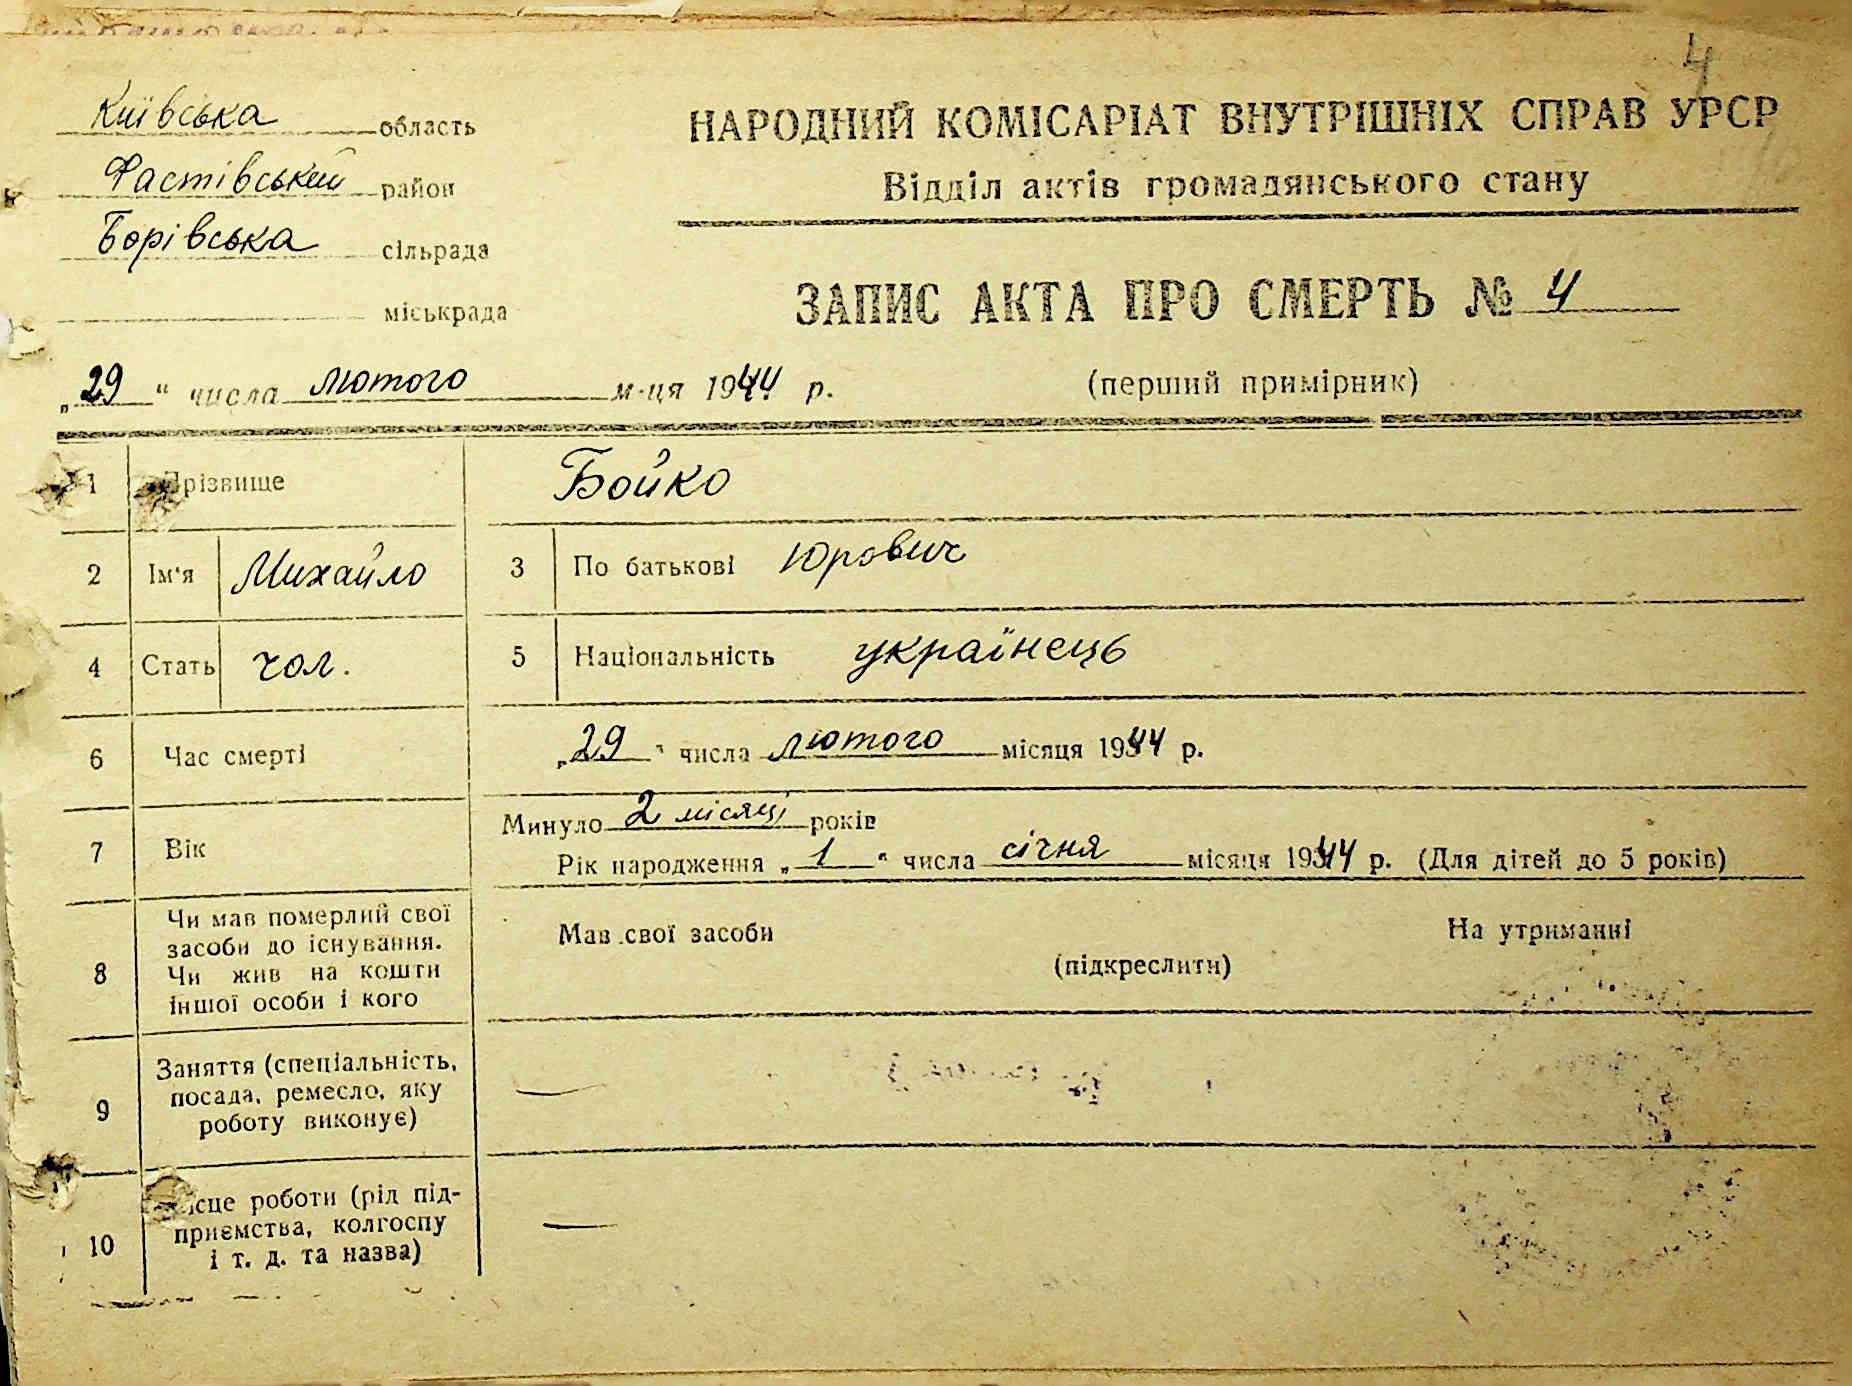 4
Київська область
Фастівський район
Борівська сільрада
міськрада
НАРОДНИЙ КОМІСАРІАТ ВНУТРІШНІХ СПРАВ УРСР
Відділ актів громадянського стану
ЗАПИС АКТА ПРО СМЕРТЬ № 4
„29“ числа лютого м-ця 1944 р.
(перший примірник)
1 Прізвище Бойко
2 Ім'я Михайло 3 По батькові Юрович
4 Стать чол. 5 Національність українець
6 Час смерті „29“ числа лютого місяця 1944 р.
7 Вік Минуло 2 місяці років
Рік народження „1“ числа січня місяця 1944 р. (Для дітей до 5 років)
8 Чи мав померлий свої
засоби до існування.
Чи жив на кошти
іншої особи і кого
Мав свої засоби На утриманні
(підкреслити)
9 Заняття (спеціальність,
посада, ремесло, яку
роботу виконує) —
10 Місце роботи (ріл під-
приємства, колгоспу
і т. д. та назва) —